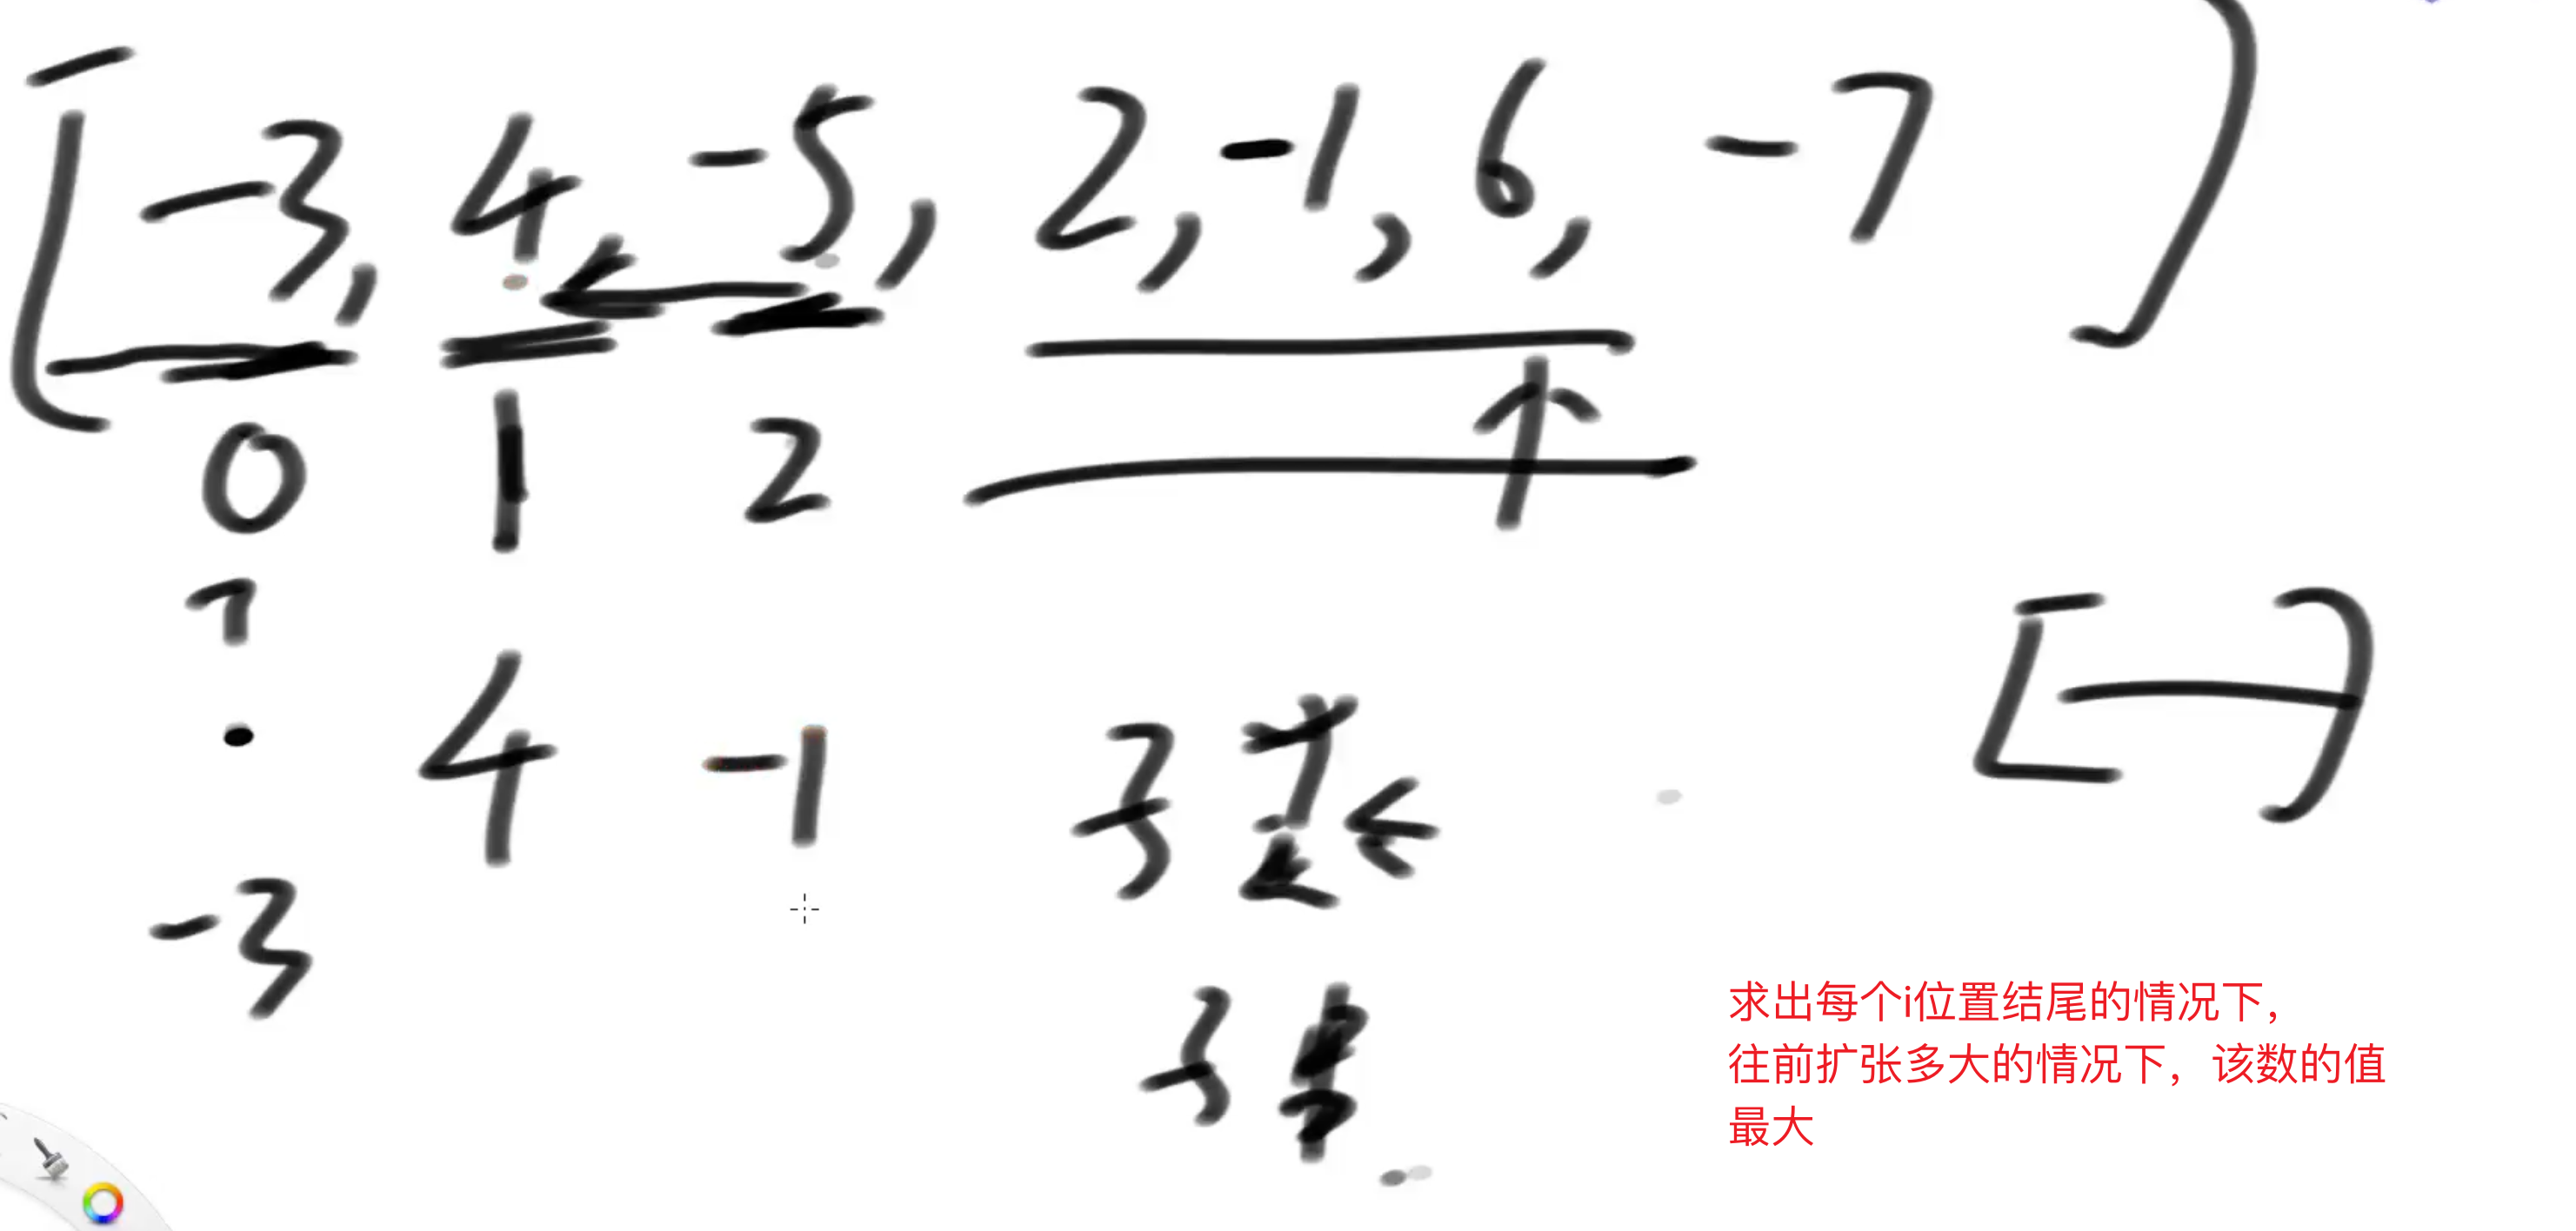 [-3, 4, -5, 2, -1, 6, -7]
0 1 2
4 -1
-3
求出每个i位置结尾的情况下，
往前扩张多大的情况下，该数的值
最大